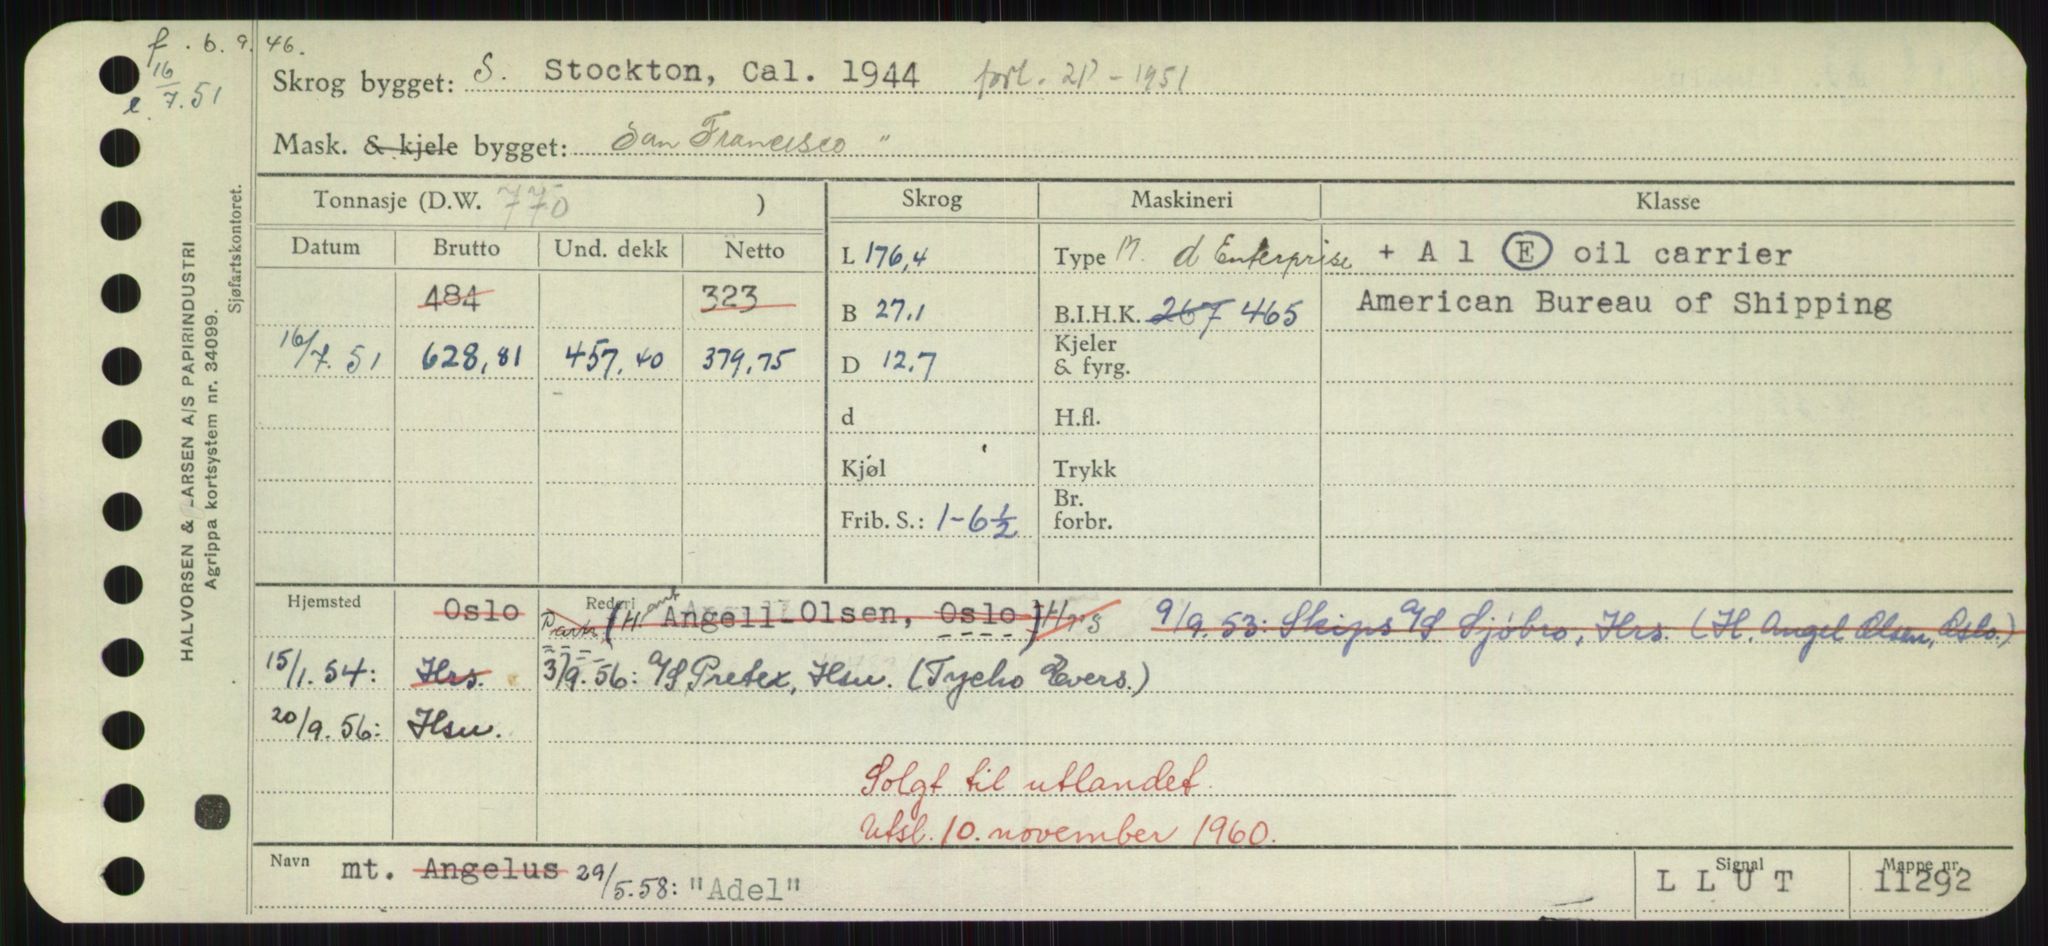 f. 6. 9. 46.
16/7.51
Skrog bygget: S. Stockton, Cal. 1944 forl. 21' - 1951
Mask. & kjele bygget: San Francisco "
Tonnasje (D.W. 770 ) Skrog Maskineri Klasse
Datum Brutto Und. dekk Netto L 176,4 Type M. d Enterprise + A 1 (E) oil carrier
484 323 B 27.1 B.I.H.K. 267 465 American Bureau of Shipping
16/7.51 628,81 457,40 379,75 D 12.7 Kjeler & fyrg.
d H.fl.
Kjøl Trykk
Frib. S.: 1-6½ Br. forbr.
Hjemsted Oslo Rederi Part. (H. Angell-Olsen, Oslo) Hrs 9/9.53: Skips A/S Sjøbro, Hrs. (H. Angel Olsen, Oslo.)
15/1.54: Hrs. 3/9.56: A/S Pretex, Hsu. (Tycho Evers.)
20/9.56: Hsu.
Solgt til utlandet.
Utsl. 10. november 1960.
Navn mt. Angelus 29/5.58: "Adel" Signal L L U T Mappe nr. 11292
HALVORSEN & LARSEN A/S PAPIRINDUSTRI
Agrippa kortsystem nr. 34099.
Sjøfartskontoret.